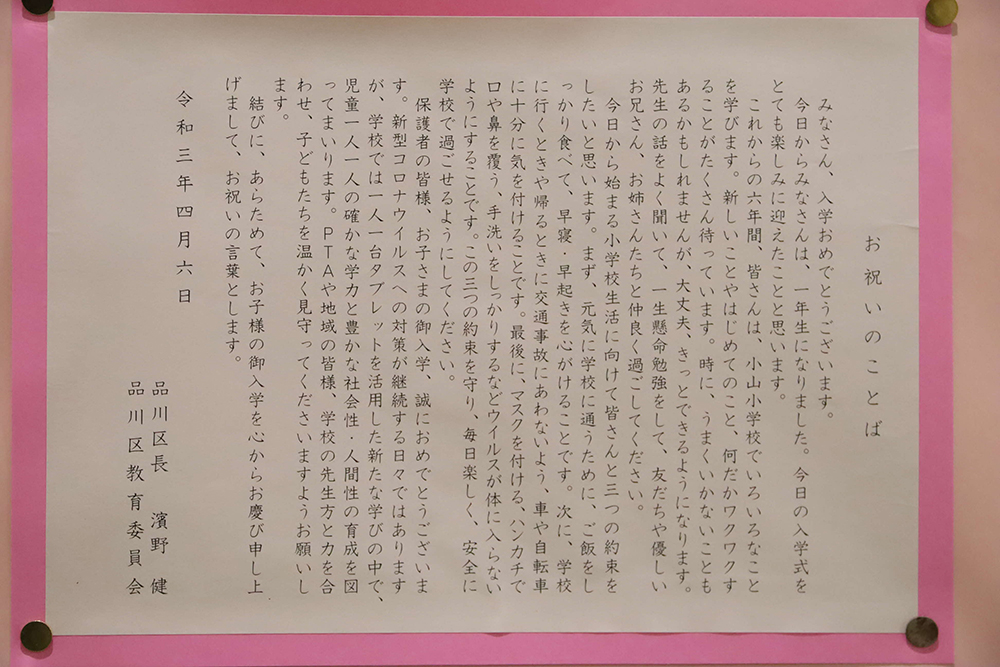 お祝いのことば
みなさん、入学おめでとうございます。
今日からみなさんは、一年生になりました。今日の入学式を
とても楽しみに迎えたことと思います。
これからの六年間、皆さんは、小山小学校でいろいろなこと
を学びます。新しいことやはじめてのこと、何だかワクワクす
ることがたくさん待っています。時に、うまくいかないことも
あるかもしれませんが、大丈夫、きっとできるようになります。
先生の話をよく聞いて、一生懸命勉強をして、友だちや優しい
お兄さん、お姉さんたちと仲良く過ごしてください。
今日から始まる小学校生活に向けて皆さんと三つの約束を
したいと思います。まず、元気に学校に通うために、ご飯をし
っかり食べて、早寝・早起きを心がけることです。次に、学校
に行くときや帰るときに交通事故にあわないよう、車や自転車
に十分に気を付けることです。最後に、マスクを付ける、ハンカチで
口や鼻を覆う、手洗いをしっかりするなどウイルスが体に入らない
ようにすることです。この三つの約束を守り、毎日楽しく、安全に
学校で過ごせるようにしてください。
保護者の皆様、お子さまの御入学、誠におめでとうございま
す。新型コロナウイルスへの対策が継続する日々ではあります
が、学校では一人一台タブレットを活用した新たな学びの中で、
児童一人一人の確かな学力と豊かな社会性・人間性の育成を図
ってまいります。PTAや地域の皆様、学校の先生方と力を合
わせ、子どもたちを温かく見守ってくださいますようお願いし
ます。
結びに、あらためて、お子様の御入学を心からお慶び申し上
げまして、お祝いの言葉とします。
令和三年四月六日
品川区長 濱野 健
品川区教育委員会